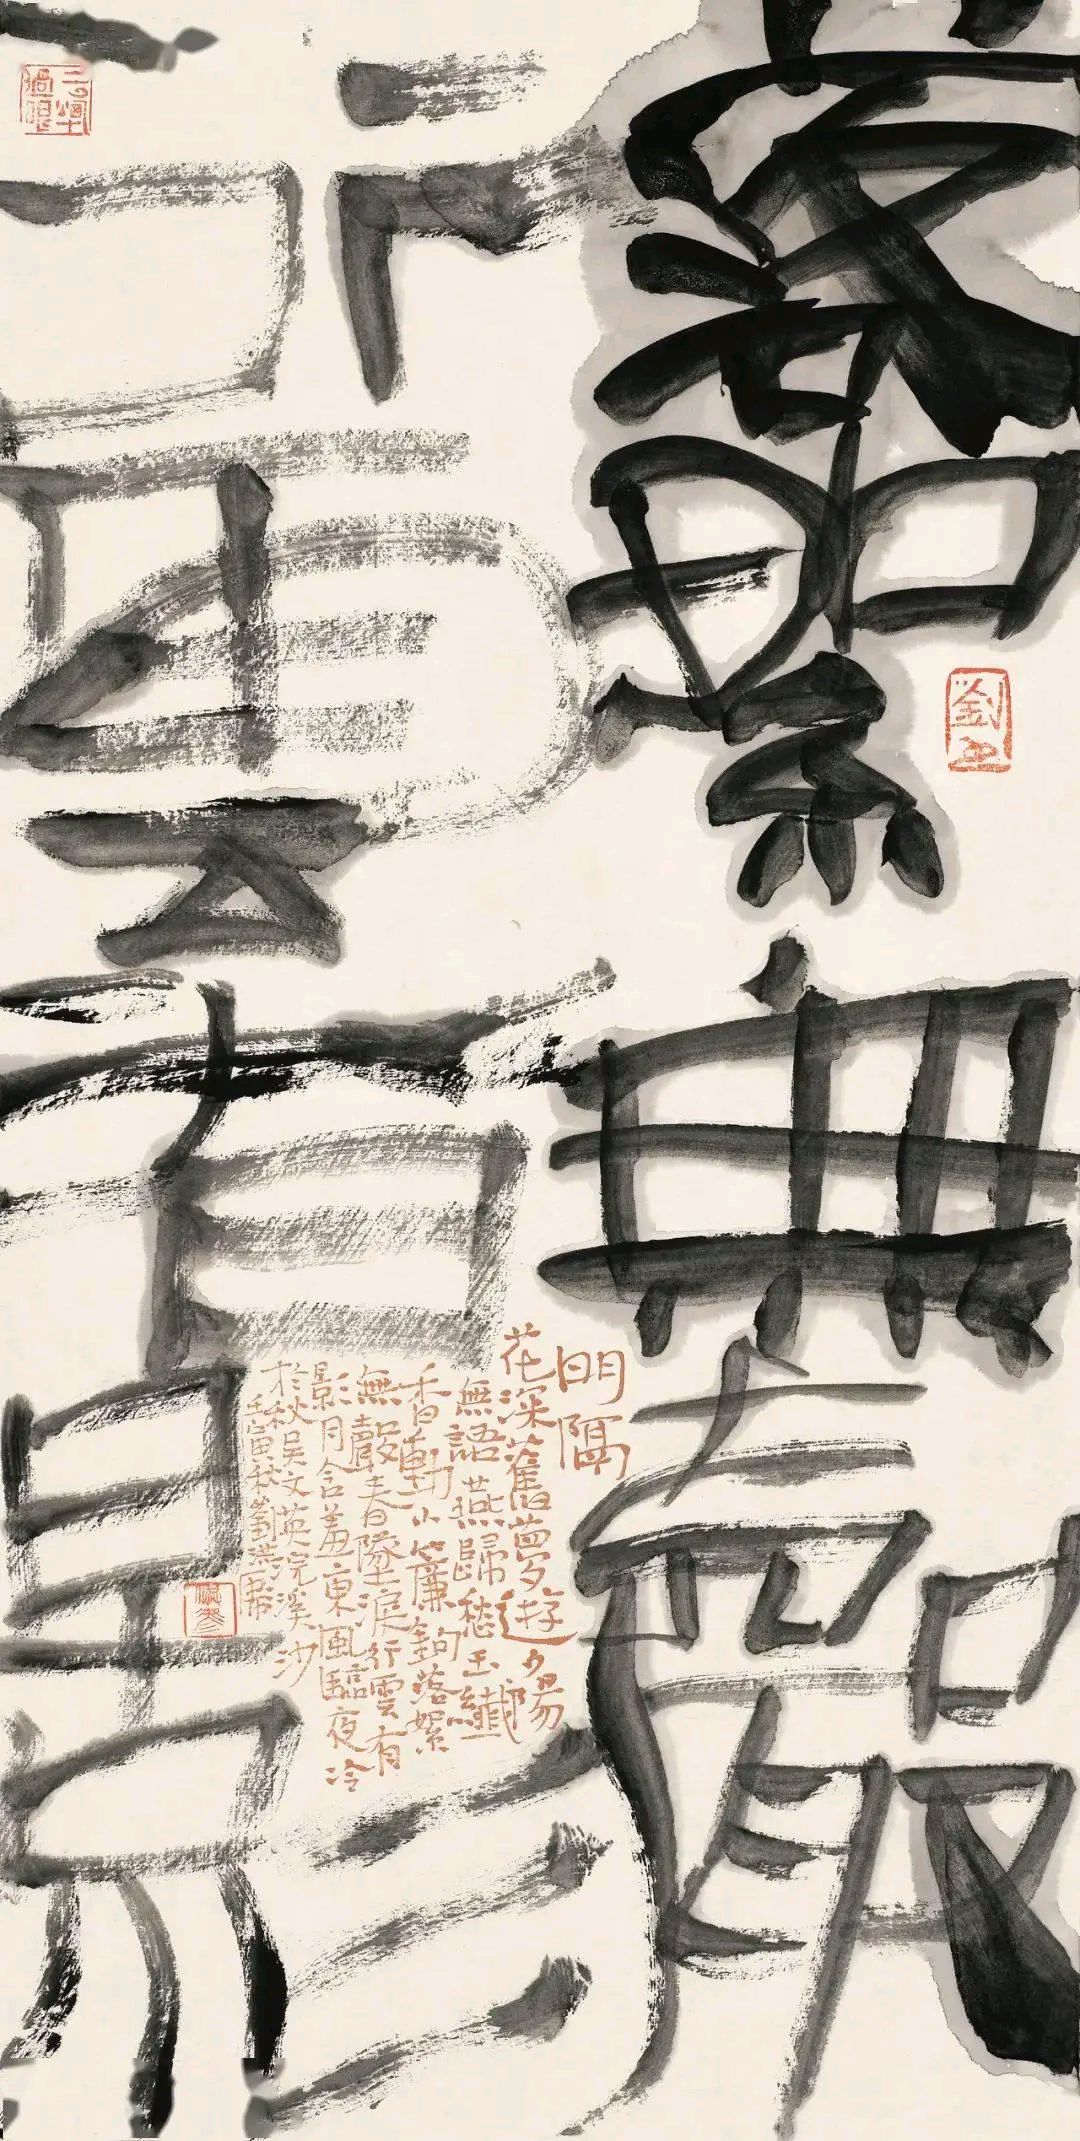 落絮無聲
行雲有影
門隔
花深舊夢遊夕陽
無語燕歸愁玉纖
香動小簾鉤落絮
無聲春墜淚行雲有
影月含羞東風臨夜冷
於秋吳文英浣溪沙
壬寅秋劉洪彪
劉